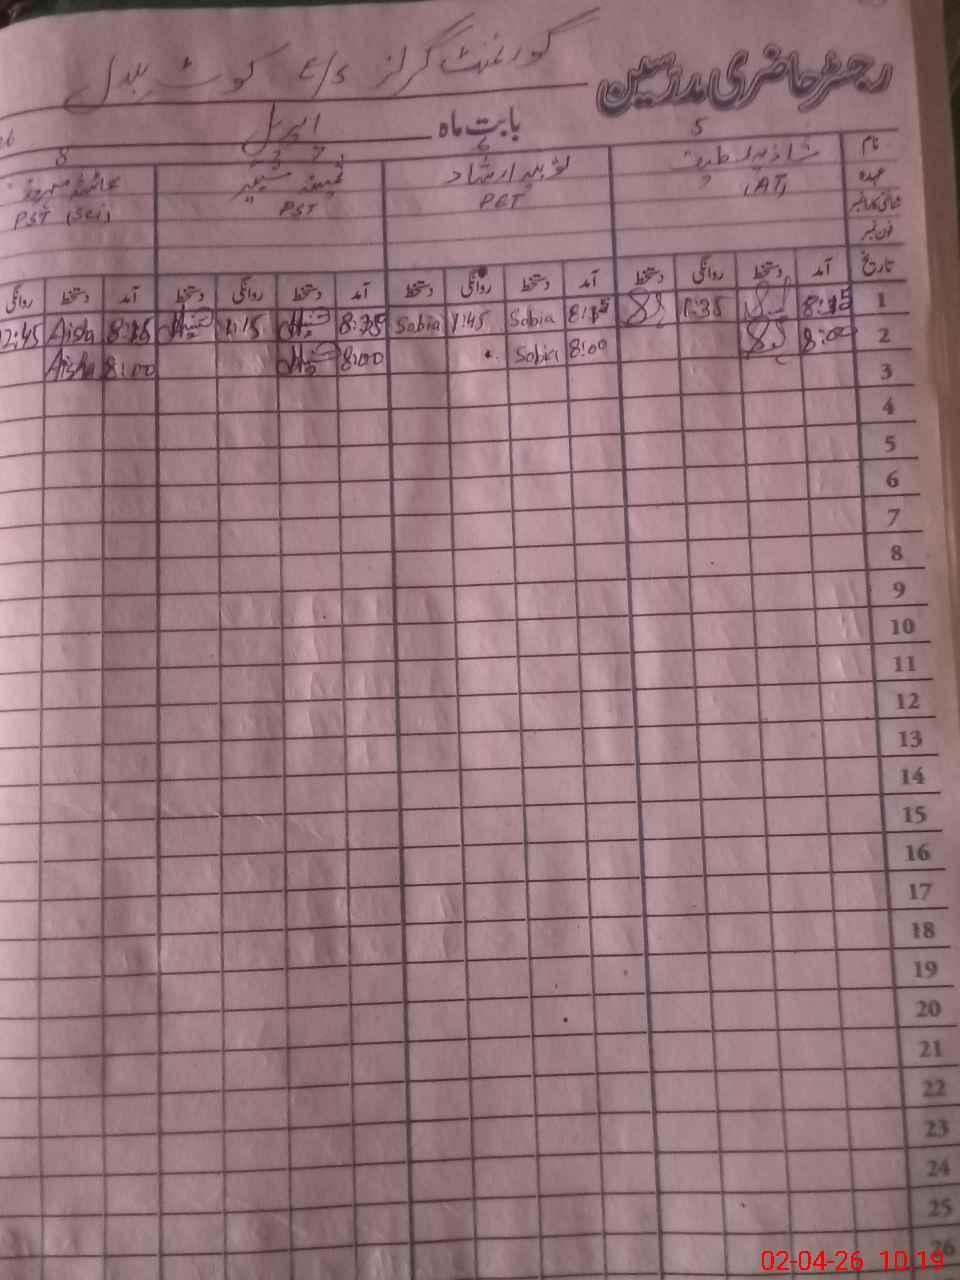 رجسٹر حاضری مدرسین گورنمنٹ گرلز E/S کوٹ بلال
بابت ماہ اپریل
5 6 7 8
نام شازیہ لطیف ثوبیہ ارشاد ثمینہ شبیر عائشہ
عہدہ (AT) PET PST PST (Sci)
شناختی کارڈ نمبر
فون نمبر
تاریخ آمد دستخط روانگی دستخط آمد دستخط روانگی دستخط آمد دستخط روانگی دستخط آمد دستخط روانگی
1 8:15 1:35 8:15 Sobia 1:45 Sobia 8:15 1:15 8:15 Aisha 12:45
2 8:00 8:00 Sobia 8:00 8:00 Aisha
3
4
5
6
7
8
9
10
11
12
13
14
15
16
17
18
19
20
21
22
23
24
25
26
02-04-26 10:19